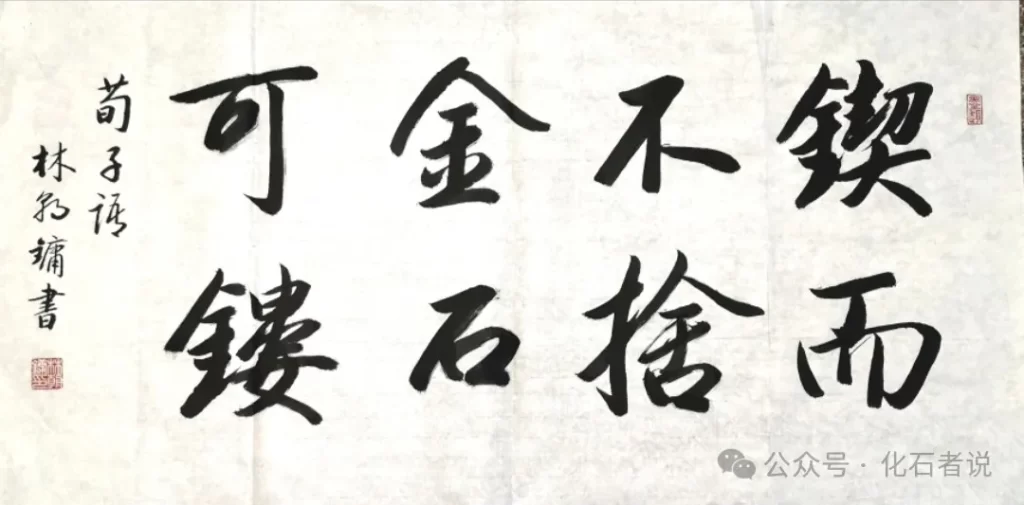 鍥而
不捨
金石
可鏤
荀子語
林
鏞書
公众号·化石者说